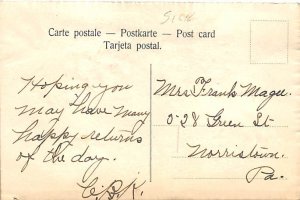 Carte postale — Postkarte — Post card
Tarjeta postal.
Hoping you
may have many
happy returns
of the day.
C.B.K.
Mrs Frank Magee.
028 Green St
Norristown,
Pa.